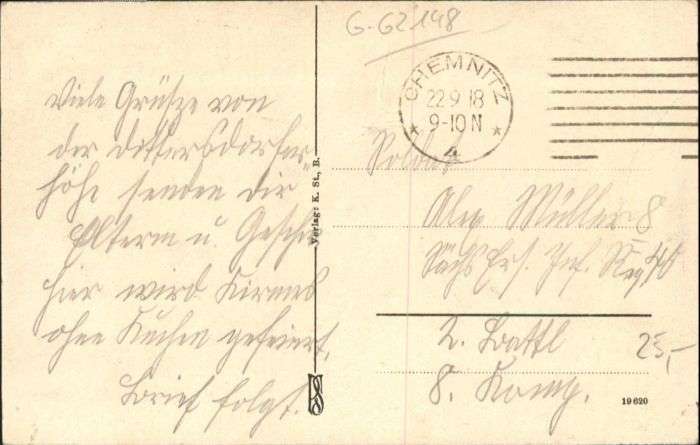 G-G2198
CHEMNITZ
22.9.18
9-10 N
* *
4
Viele Grüsze von
der Dittersdorfer
höhe senden Dir
Eltern u. Gesch.
hier wird Kirmes
ohne Kuchen gefeiert,
Brief folgt.
Verlag: K. St., B.
Soldat
Alex Müller 8
Sächs Ers. Inf. Reg. 40
2. Battl
8. Komp.
25,-
19620